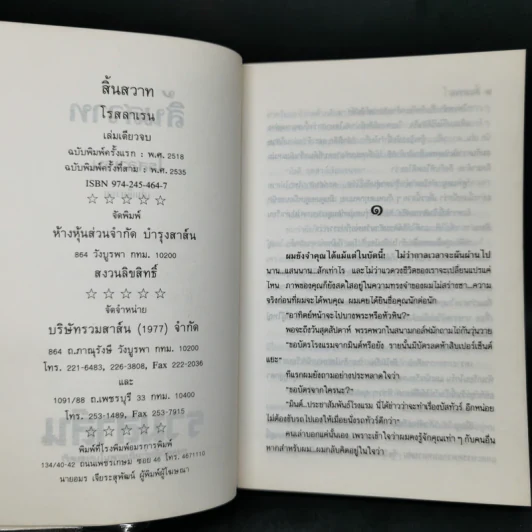 สิ้นสวาท
โรสลาเรน
เล่มเดียวจบ
ฉบับพิมพ์ครั้งแรก : พ.ศ. 2518
ฉบับพิมพ์ครั้งที่สาม : พ.ศ. 2535
ISBN 974-245-464-7
☆ ☆ ☆ ☆ ☆
จัดพิมพ์
ห้างหุ้นส่วนจำกัด บำรุงสาส์น
864 วังบูรพา กทม. 10200
สงวนลิขสิทธิ์
☆ ☆ ☆ ☆ ☆
จัดจำหน่าย
บริษัทรวมสาส์น (1977) จำกัด
864 ถ.ภาณุรังษี วังบูรพา กทม. 10200
โทร. 221-6483, 226-3808, Fax 222-2036
และ
1091/88 ถ.เพชรบุรี 33 กทม. 10400
โทร. 253-1489, Fax 253-7915
☆ ☆ ☆ ☆ ☆
พิมพ์ที่โรงพิมพ์อมรการพิมพ์
134/40-42 ถนนเพชรเกษม ซอย 46 โทร. 4671110
นายอมร เจียระสุพัฒน์ ผู้พิมพ์ผู้โฆษณา
๑
ผมยังจำคุณได้แม้แต่ในบัดนี้! ไม่ว่ากาลเวลาจะผันผ่านไป
นาน...แสนนาน...สักเท่าไร และไม่ว่าแวดวงชีวิตของเราจะเปลี่ยนแปรแค่
ไหน ภาพของคุณก็ยังสดใสอยู่ในความทรงจำของผมไม่สร่างซา...ความ
จริงก่อนที่ผมจะได้พบคุณ ผมเคยได้ยินชื่อคุณนักต่อนัก
"อาทิตย์หน้าจะไปบางพระหรือหัวหิน?"
พอจะถึงวันสุดสัปดาห์ พรรคพวกในสนามกอล์ฟมักถามไถ่กันวุ่นวาย
"ขอบัตรโรงแรมจากมินต์หรือยัง รายนั้นมีบัตรลดห้าสิบเปอร์เซ็นต์
แยะ"
ที่แรกผมยังถามอย่างประหลาดใจว่า
"ขอบัตรจากใครนะ?"
"มินต์...ประชาสัมพันธ์โรงแรม นี่ได้ข่าวว่าจะทำเรื่องบัสทัวร์ อีกหน่อย
ไม่ต้องขับรถไปเองให้เมื่อยนั่งรถทัวร์ดีกว่า"
คนเล่าบอกแค่นั้นเอง เพราะเข้าใจว่าผมคงรู้จักคุณเท่า ๆ กับคนอื่น
หากสำหรับผม...ผมกลับคิดอยู่ในใจว่า